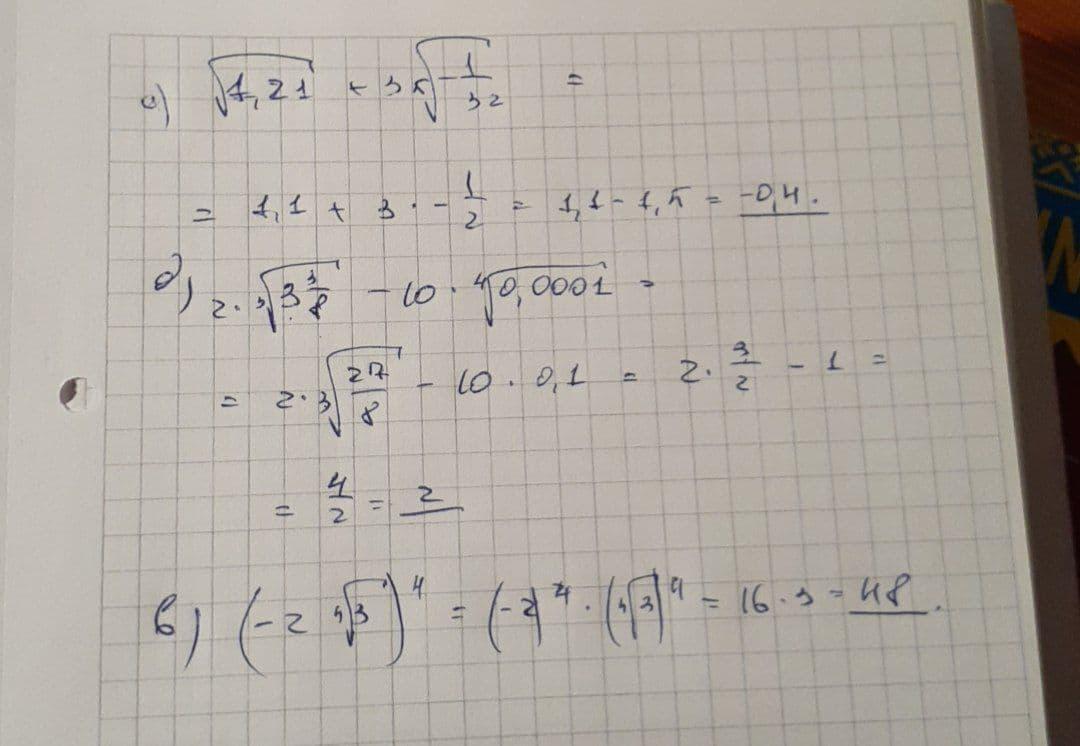 а) √1,21 + 3 ⁵√-1/32 =
= 1,1 + 3 · - 1/2 = 1,1 - 1,5 = -0,4.
б) 2 · ³√3 3/8 - 10 · ⁴√0,0001 =
= 2 · ³√27/8 - 10 · 0,1 = 2 · 3/2 - 1 =
= 4/2 = 2
в) (-2 ⁴√3)⁴ = (-2)⁴ · (⁴√3)⁴ = 16 · 3 = 48.